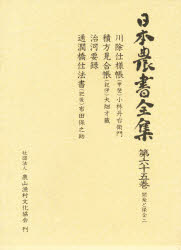 日本農書全集
第六十五巻
開発と保全二
川除仕様帳(甲斐)小林丹右衛門
積方見合帳(紀伊)大畑才蔵
治河要録
通潤橋仕法書(肥後)布田保之助
社団法人 農山漁村文化協会 刊